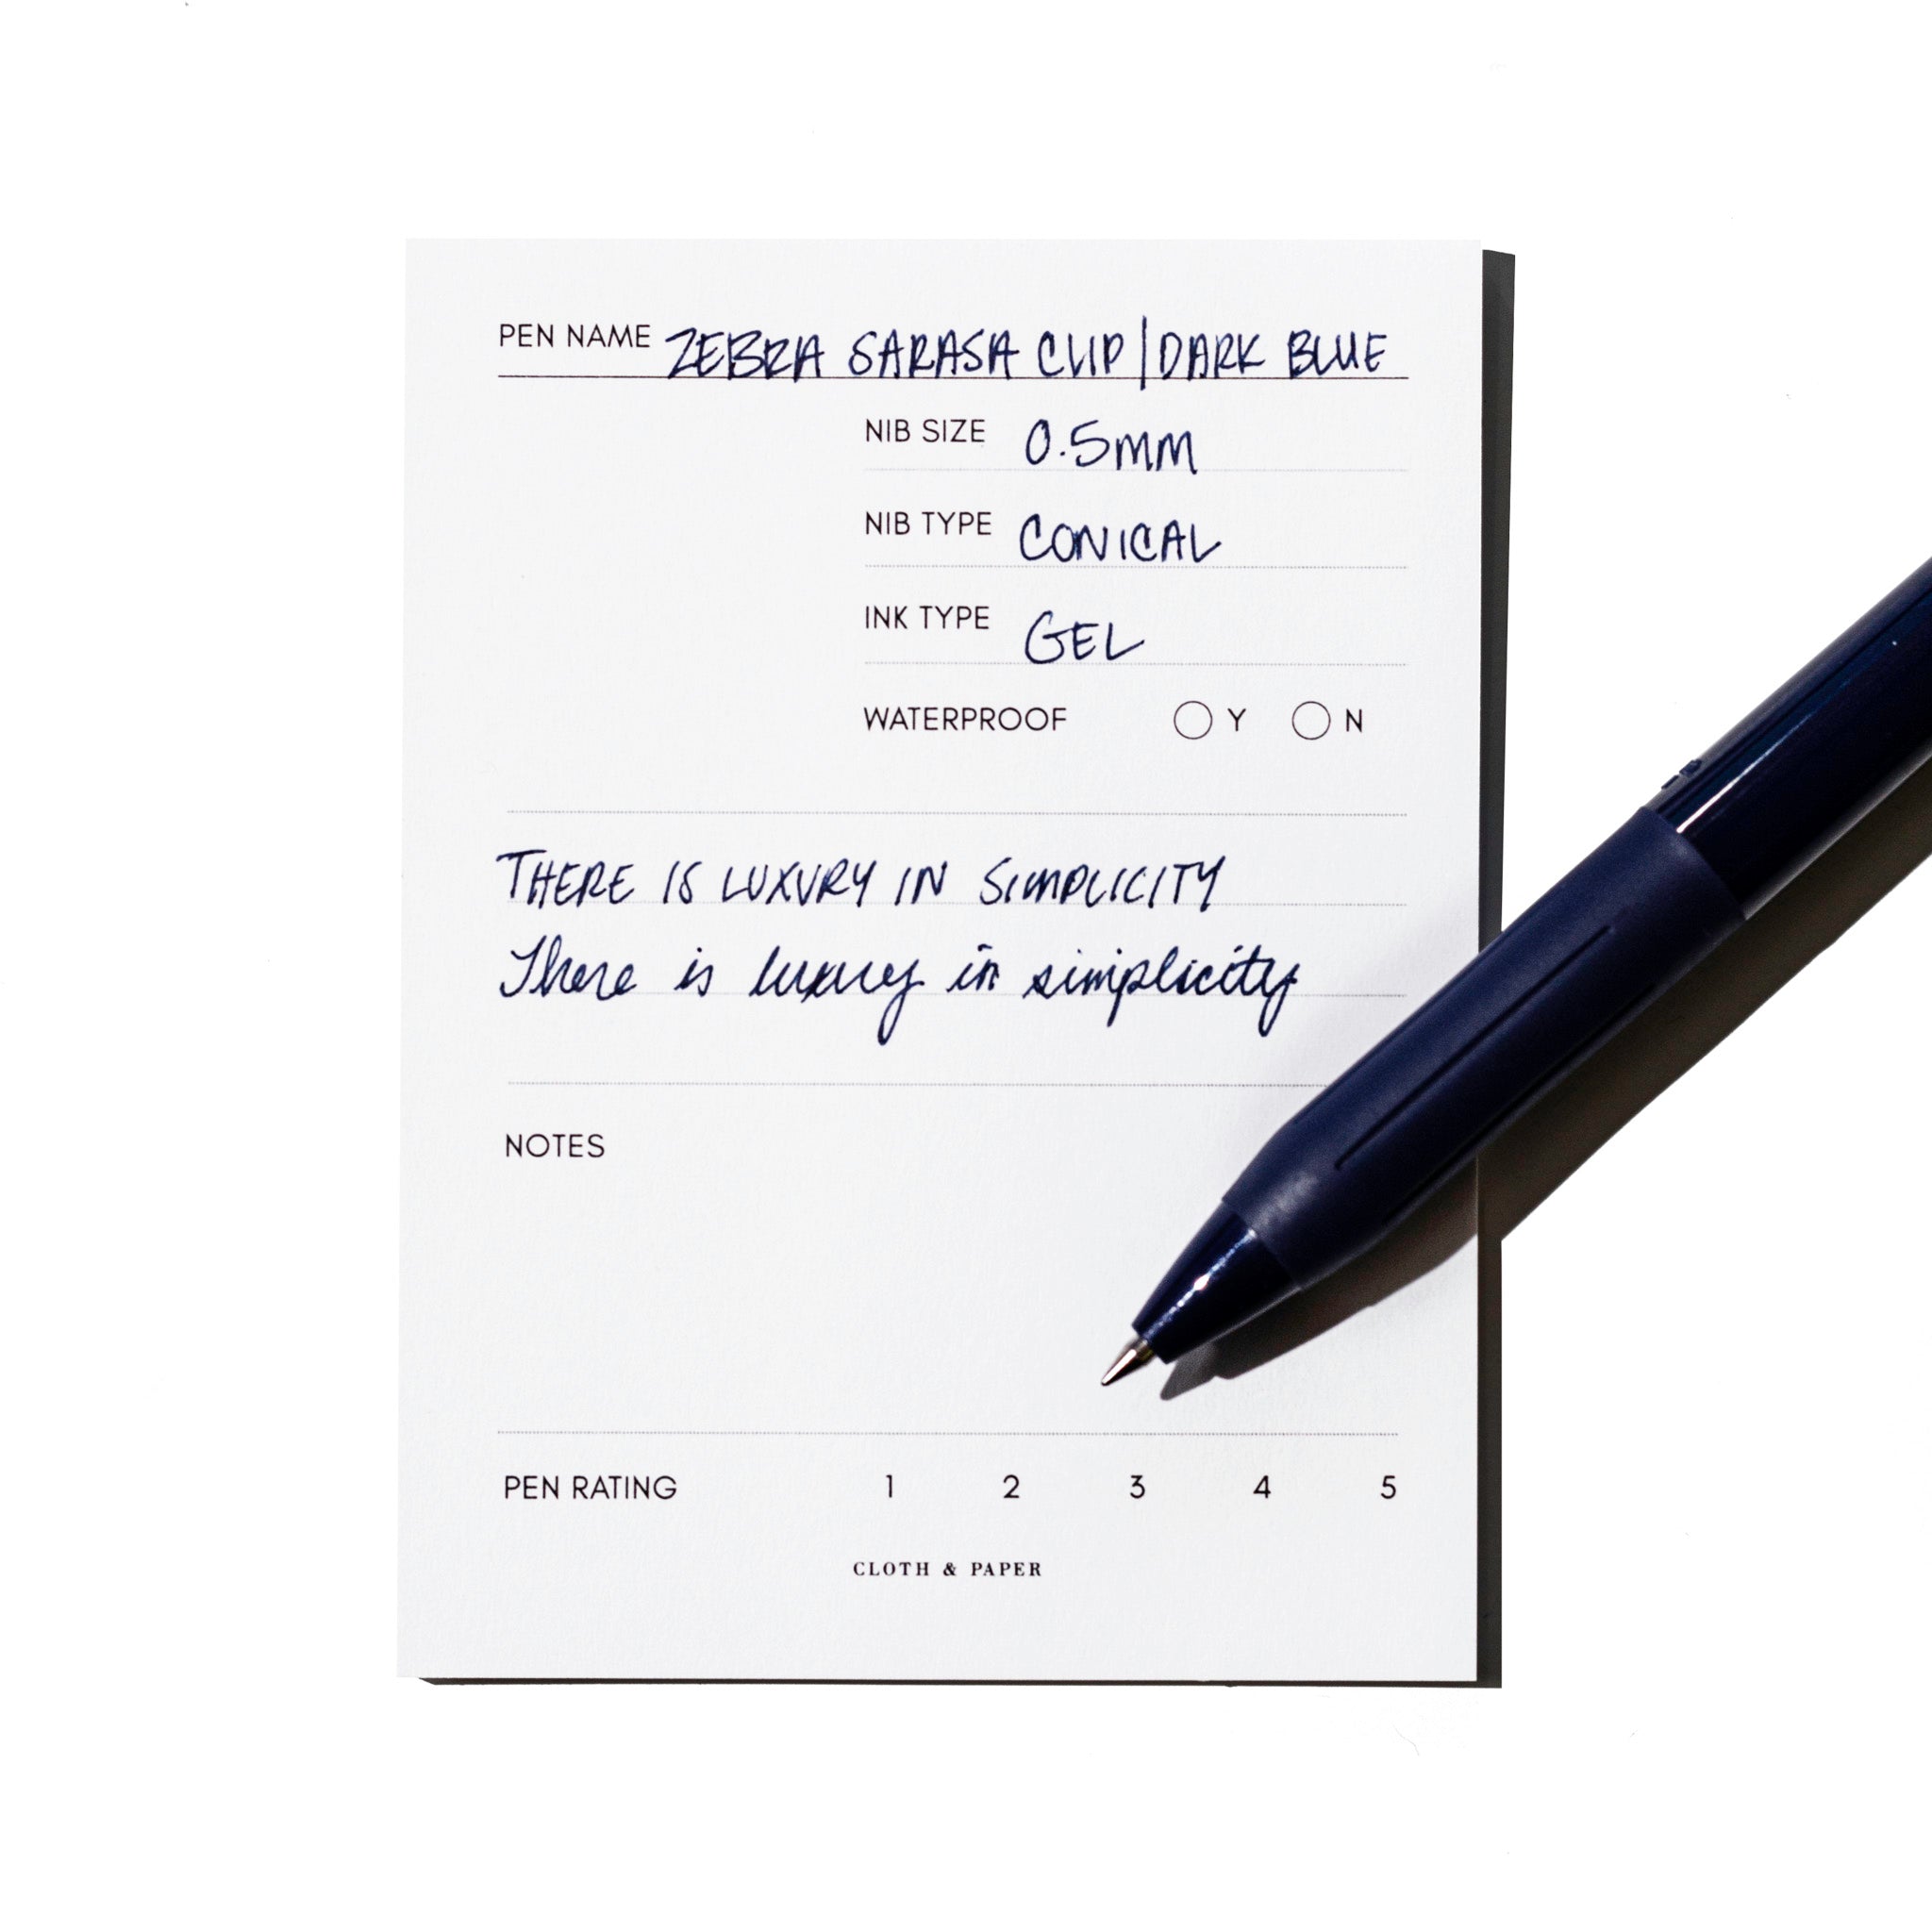 PEN NAME ZEBRA SARASA CLIP | DARK BLUE
NIB SIZE 0.5mm
NIB TYPE CONICAL
INK TYPE GEL
WATERPROOF Y N
THERE IS LUXURY IN SIMPLICITY
There is luxury in simplicity
NOTES
PEN RATING 1 2 3 4 5
CLOTH & PAPER